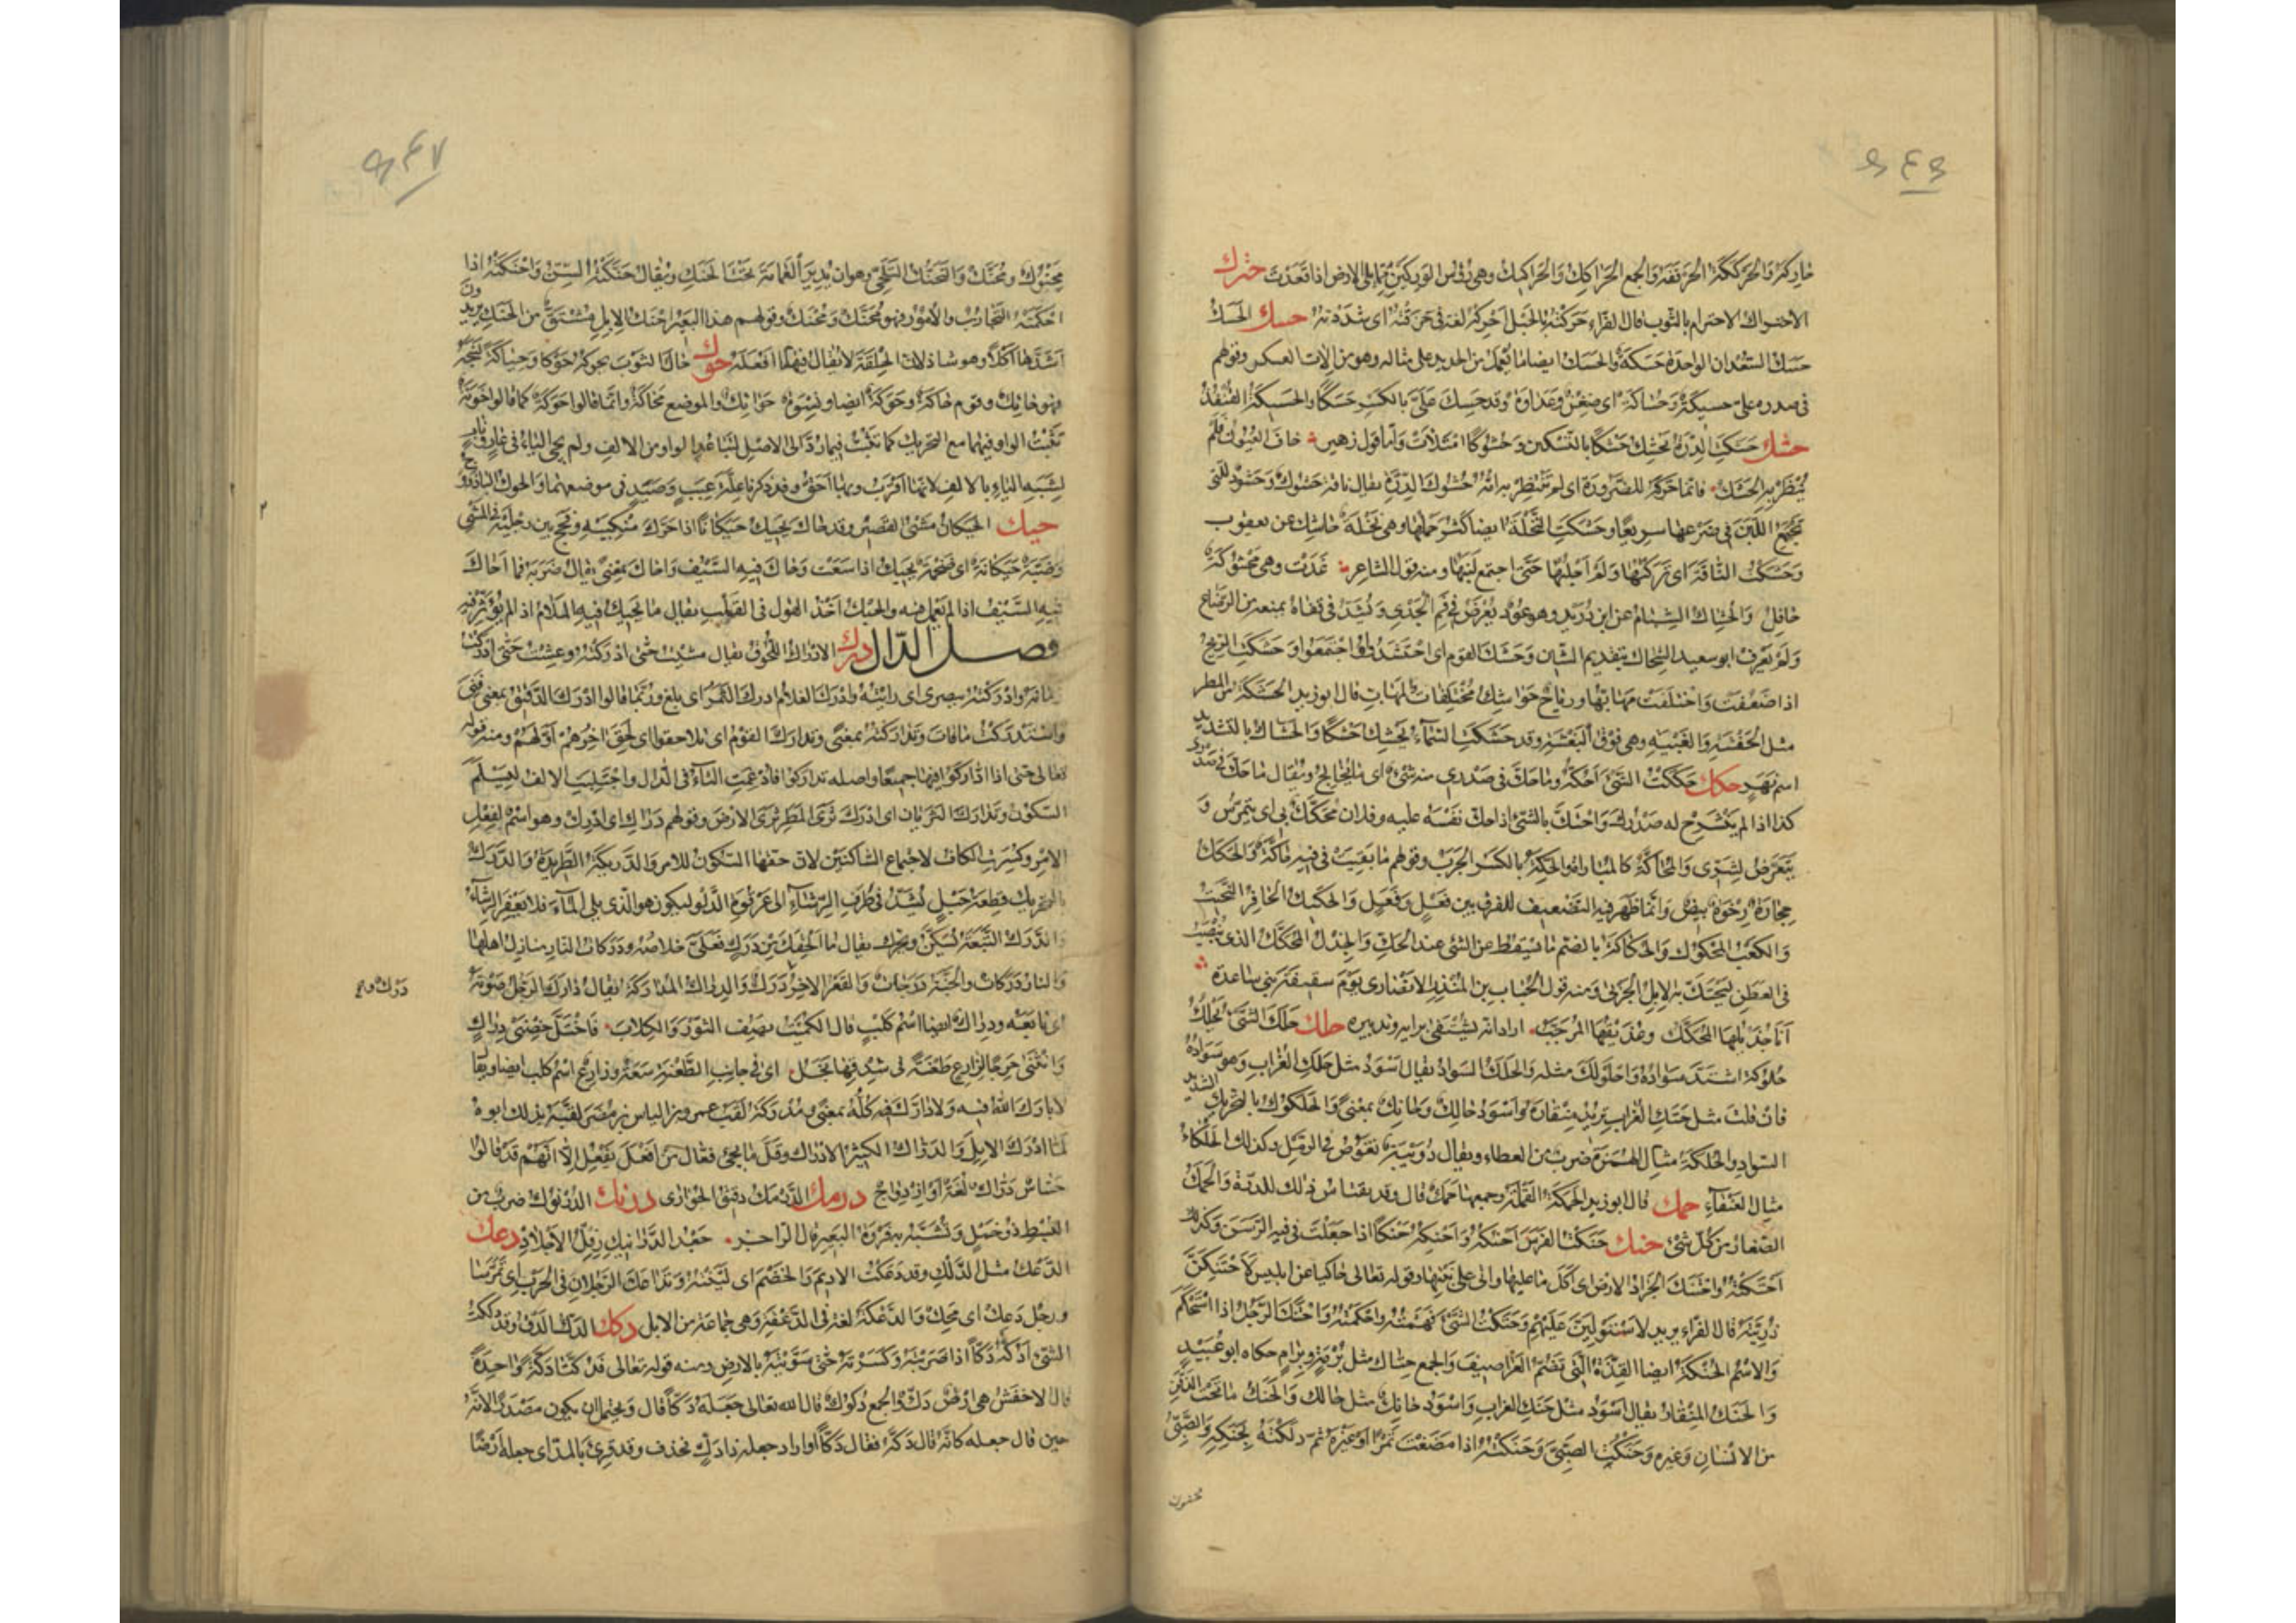 خاركة والحركككة الحرقفة والجمع الحراكك والحراكيك وهى رؤس الوركين مما يلى الارض اذا قعدت حزك
الاحتزاك الاحتزام بالثوب قال الفراء حزكته بالحبل احزكه لغة فى حزقته اى شددته حسك الحسك
حسك السعدان الواحدة حسكة والحسك ايضا ما يعمل من الحديد على مثاله وهو من الات العسكر وقولهم
فى صدره على حسيكة وحساكة اى ضغن وعداوة وقد حسك على بالكسر حسكا والحسيكة القنفذ
حشك حشكت الدرة تحشك حشكا بالتسكين وحشوكا امتلات واما قول زهير خاف العيون فلم
ينظر به الحشك فانما حركه للضرورة اى لم تنتظر به امه حشوك الدرة يقال ناقة حشوك وحشود للتى
يجتمع اللبن فى ضرعها سريعا وحشكت النخلة ايضا كثر حملها وهى نخلة حاشك عن يعقوب
وحشكت الناقة اى تركتها ولم احلبها حتى اجتمع لبنها ومنه قول الشاعر غدت وهى محشوكة
حافل والحشاك الشبام عن ابن دريد وهو عود يعرض فى فم الجدى ويشد فى قفاه يمنعه من الرضاع
ولم يعرف ابو سعيد الشحاك بتقديم الشين وحشك القوم اى احتشدوا واجتمعوا وحشكت الريح
اذا ضعفت واختلفت مهابها ورياح حواشك مختلفات المهاب قال ابو زيد الحشكة من المطر
مثل الحفشة والغبية وهى فوق البغشة وقد حشكت السماء تحشك حشكا والحشاك بالتشديد
اسم نهر حكك حككت الشئ احكه وما حك فى صدرى منه شئ اى ما تخالج ويقال ما حك فى صدرى
كذا اذا لم ينشرح له صدرك واحتك بالشئ اذا حك نفسه عليه وفلان يتحكك بى اى يتمرس و
يتعرض لشرى والمحاكة كالمباراة والحكة بالكسر الجرب وقولهم ما بقيت فى فيه حاكة والحكك
حجارة رخوة بيض وانما ظهر فيه التضعيف للفرق بين فعل وفعل والحكيك الحافر النحيت
والكعب المحكوك والحكاكة بالضم ما يسقط عن الشئ عند الحك والجذل المحكك الذى ينصب
فى العطن لتحتك به الابل الجربى ومنه قول الحباب بن المنذر الانصارى يوم سقيفة بنى ساعدة
انا جذيلها المحكك وعذيقها المرجب اراد انه يشتفى برايه وتدبيره حلك حلك الشئ يحلك
حلوكة اشتد سواده واحلولك مثله والحلك السواد يقال اسود مثل حلك الغراب وهو سواده
فان قلت مثل حنك الغراب تريد منقاره واسود حالك وحانك بمعنى والحلكوك بالتحريك الشديد
السواد والحلكة مثال الهمزة ضرب من العظاء ويقال دويبة تغوص فى الرمل وكذلك الحلكاء
مثال العنقاء حمك قال ابو زيد الحمكة القملة وجمعها حمك قال وقد يقتاس ذلك للذرة والحمك
الصغار من كل شئ حنك حنكت الفرس احنكه واحنكه حنكا اذا جعلت فى فيه الرسن وكذلك
احتنكته واحتنك الجراد الارض اى اكل ما عليها واتى على نبتها وقوله تعالى حاكيا عن ابليس لاحتنكن
ذريته قال الفراء يريد لاستولين عليهم وحنكت الشئ فهمته واحكمته واحتنك الرجل اذا استحكم
والاسم الحنكة ايضا القدة التى تضم الغراصيف والجمع حناك مثل برمة وبرام حكاه ابو عبيد
والحنك المنقار يقال اسود مثل حنك الغراب واسود حانك مثل حالك والحنك ما تحت الذقن
من الانسان وغيره وحنكت الصبى وحنكته اذا مضغت تمرا او غيره ثم دلكته بحنكه والصبى
محنوك
محنوك ومحنك والتحنك التلحى وهو ان يدير العمامة تحت الحنك ويقال حنكته السن واحنكته اذا
احكمته التجارب والامور فهو محنك ومحنك وقولهم هذا البعير احنك الابل مشتق من الحنك يريدون
اشدها اكلا وهو شاذ لان الخلقة لا يقال فيها ما افعله حوك حاك الثوب يحوكه حوكا وحياكة نسجه
فهو حائك وقوم حاكة وحوكة ايضا ونسوة حوائك والموضع محاكة وانما قالوا حوكة كما قالوا خونة
تثبت الواو فيهما مع التحريك كما تثبت فيما رد الى الاصل لتباعد الواو من الالف ولم يجئ الياء فى غائب
لشبه الياء بالالف لانها اقرب وبها احق وقد ذكرنا علة غيب وصيد فى موضعهما والحوك الباذروج
حيك الحيكان مشى القصير وقد حاك يحيك حيكانا اذا حرك منكبيه وفحج بين رجليه فى المشى
وضبة حيكانة اى ضخمة تحيك اذا سعت وحاك فيه السيف واحاك بمعنى يقال ضربه فما احاك
فيه السيف اذا لم يعمل فيه والحيك اخذ القول فى القلب يقال ما يحيك فيه الملام اذا لم يؤثر فيه
فصل الدال درك الادراك اللحوق يقال مشيت حتى ادركته وعشت حتى ادركت
زمانه وادركته ببصرى اى رايته وادرك الغلام وادرك الثمر اى بلغ وربما قالوا ادرك الدقيق بمعنى فنى
واستدركت ما فات وتداركته بمعنى وتدارك القوم اى تلاحقوا اى لحق اخرهم اولهم ومنه قوله
تعالى حتى اذا اداركوا فيها جميعا واصله تداركوا فادغمت التاء فى الدال واجتلبت الالف ليسلم
السكون وتدارك الثريان اى ادرك ثرى المطر ثرى الارض وقولهم دراك اى ادرك وهو اسم لفعل
الامر وكسرت الكاف لاجتماع الساكنين لان حقها السكون للامر والدريكة الطريدة والدرك
بالتحريك قطعة حبل يشد فى طرف الرشاء الى عرقوة الدلو ليكون هو الذى يلى الماء فلا يعفن الرشاء
والدرك التبعة يسكن ويحرك يقال ما لحقك من درك فعلى خلاصه ودركات النار منازل اهلها
والنار دركات والجنة درجات والقعر الاخر درك ودرك والدراك المداركة يقال دارك الرجل صوته
اى تابعه ودراك ايضا اسم كلب قال الكميت يصف الثور والكلاب فاختل حضنى دراك
وانثنى حرجا لزارع طعنة فى شدقها نجل اى فى جانب الطعنة سعة وزارع اسم كلب ايضا ويقال
لا بارك الله فيه ولا دارك فيه كله بمعنى ومدركة لقب عمرو بن الياس بن مضر لقبه بذلك ابوه
لما ادرك الابل والدراك الكثير الادراك وقل ما يجئ فعال من افعل يفعل الا انهم قد قالوا
حساس دراك لغة او ازدواج درمك الدرمك دقيق الحوارى درنك الدرنوك ضرب من
البسط ذو خمل وتشبه به فروة البعير قال الراجز جعد الدرانيك رفل الاجلاد دعك
الدعك مثل الدلك وقد دعكت الاديم والخصم اى لينته وتداعك الرجلان فى الحرب اى تمرسا
ورجل دعك اى محك والدعكة لغة فى الدعقة وهى جماعة من الابل دكك الدك الدق وقد دككت
الشئ ادكه دكا اذا ضربته وكسرته حتى سويته بالارض ومنه قوله تعالى فدكتا دكة واحدة
قال الاخفش هى ارض دك والجمع دكوك قال الله تعالى جعله دكا قال ويحتمل ان يكون مصدرا لانه
حين قال جعله كانه قال دكه فقال دكا او اراد جعله ذا دك فحذف وقد قرئ بالمد اى جعله ارضا